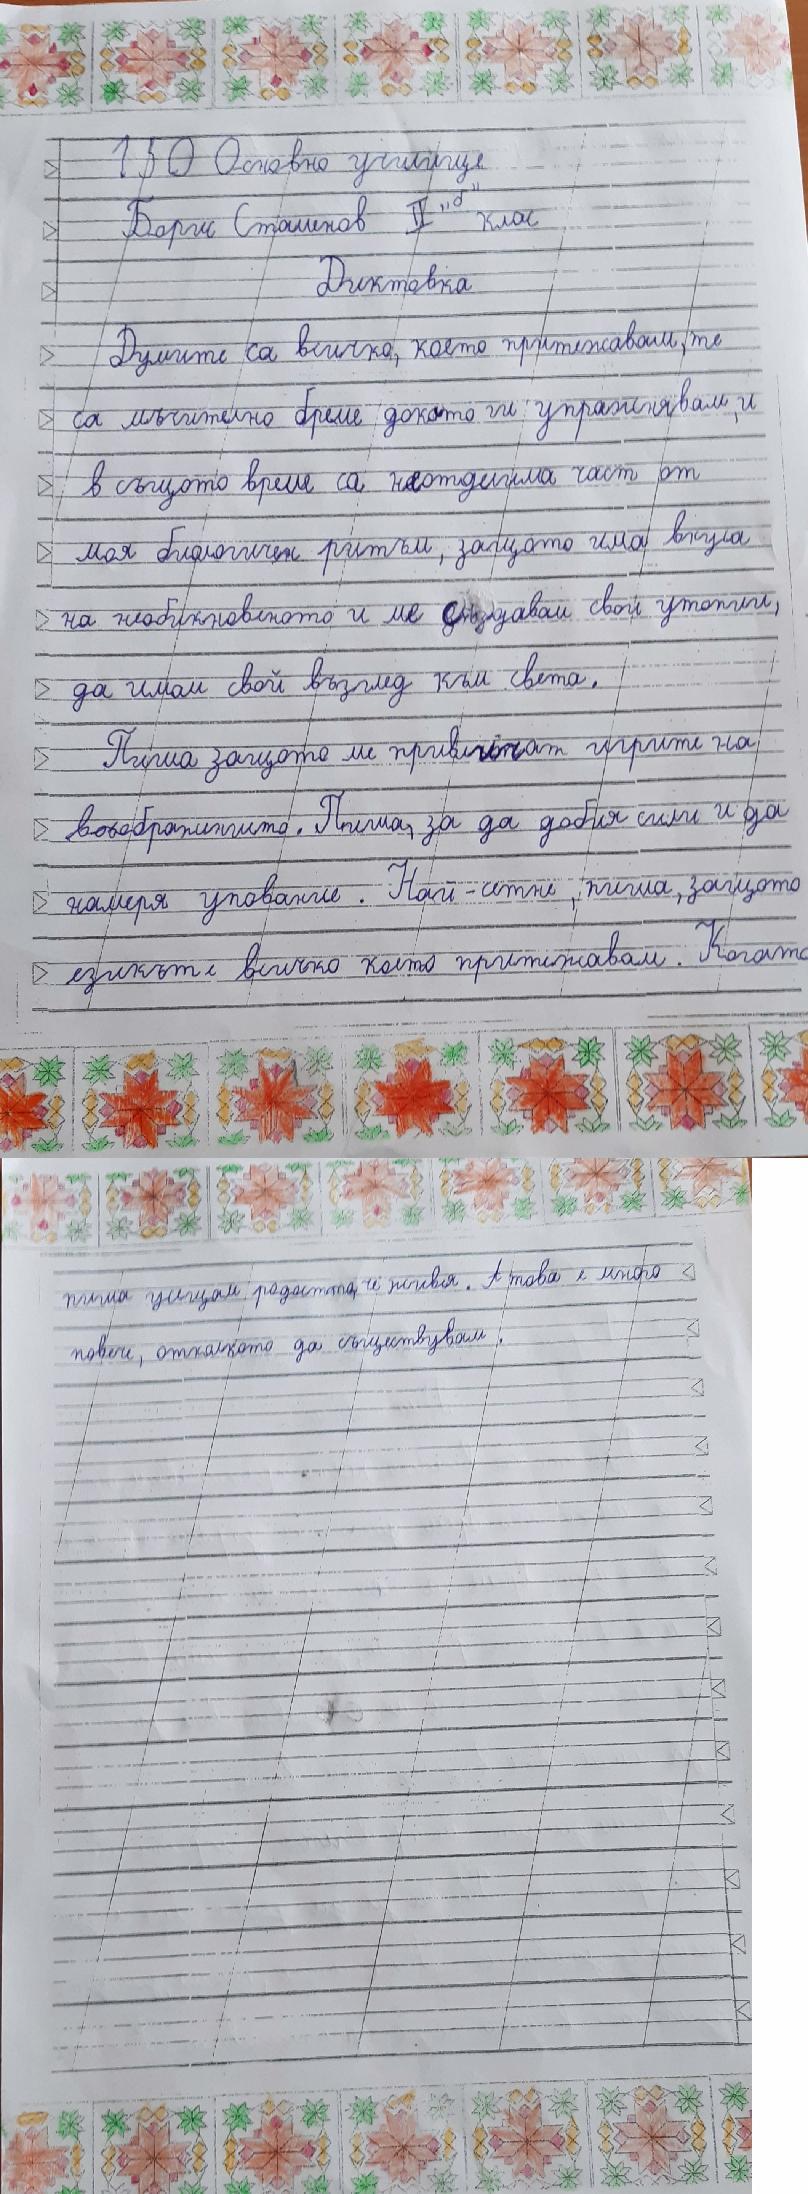 150 Основно училище
Борис Стаменов II "б" клас
Диктовка
Думите са всичко, което притежавам, те
са мъчително бреме докато ги упражнявам, и
в същото време са неотделима част от
моя биологичен ритъм, защото има вкуса
на необикновеното и ме създавам свои утопии,
да имам свой възглед към света.
Пиша защото ме привличат игрите на
въображението. Пиша, за да добия сили и да
намеря упование. Най-сетне, пиша, защото
езикът е всичко което притежавам. Когато
пиша усещам радостта, че живея. А това е много
повече, отколкото да съществувам.